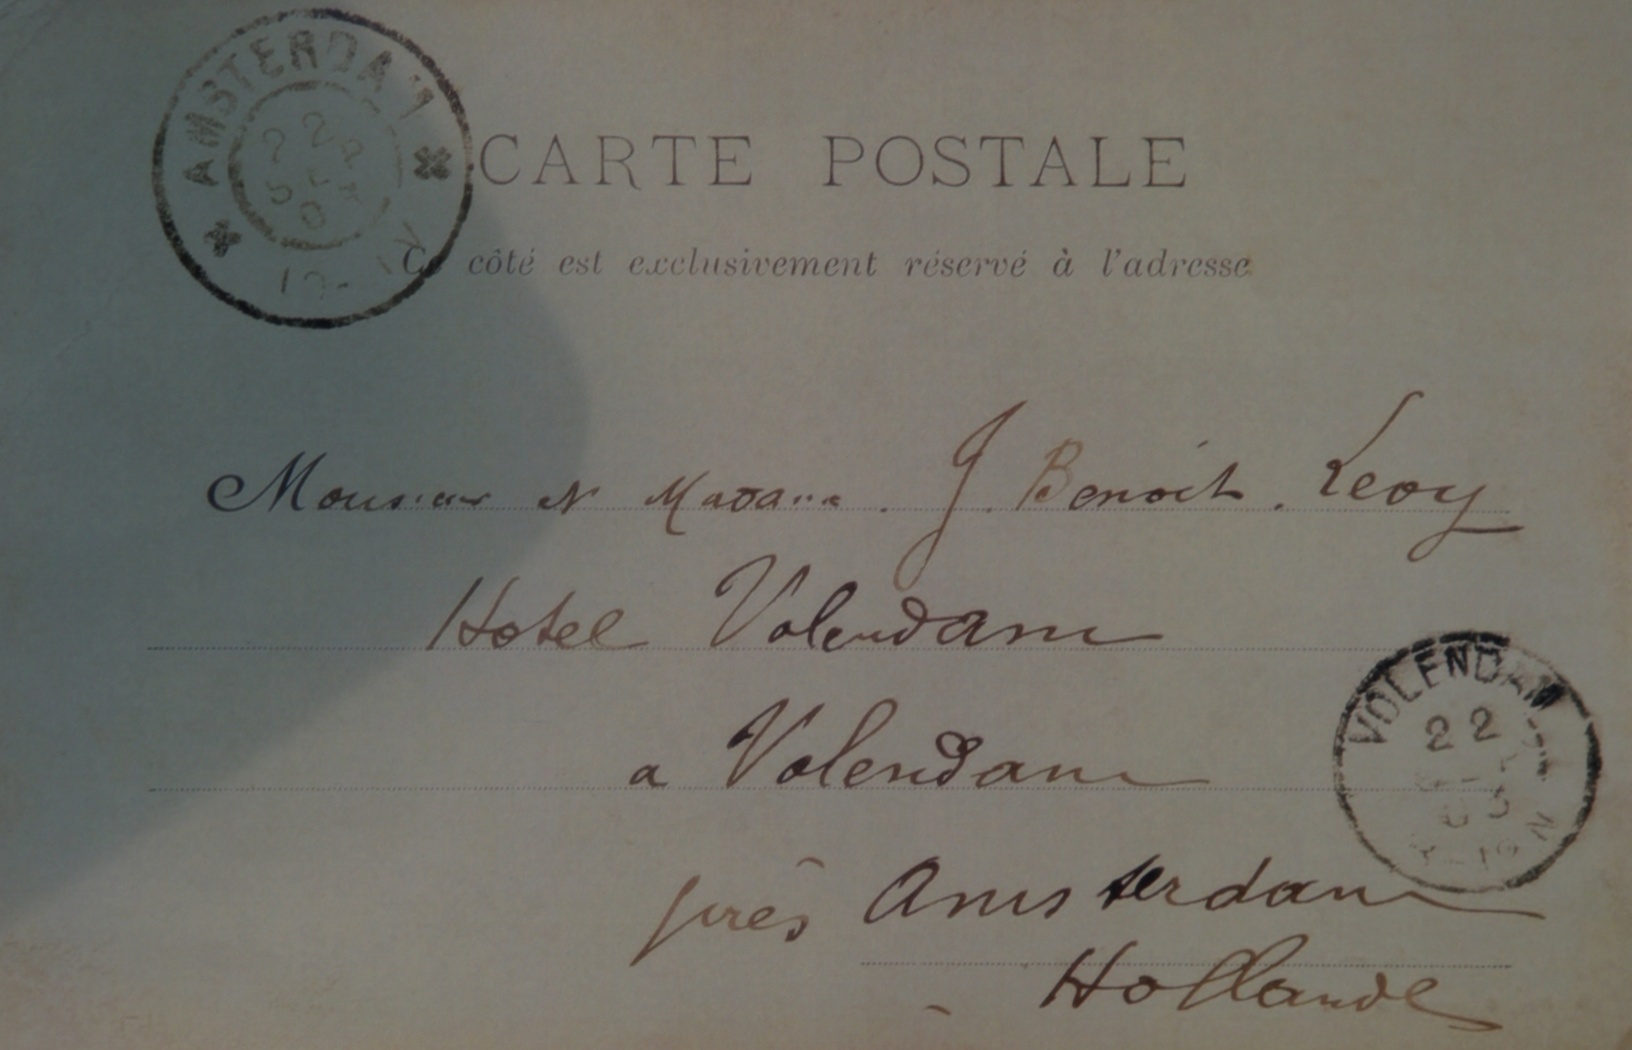 AMSTERDAM
CARTE POSTALE
Ce côté est exclusivement réservé à l'adresse
Monsieur et Madame J. Benoit. Levy
Hotel Volendam
a Volendam
près Amsterdam
Hollande
VOLENDAM
22
03